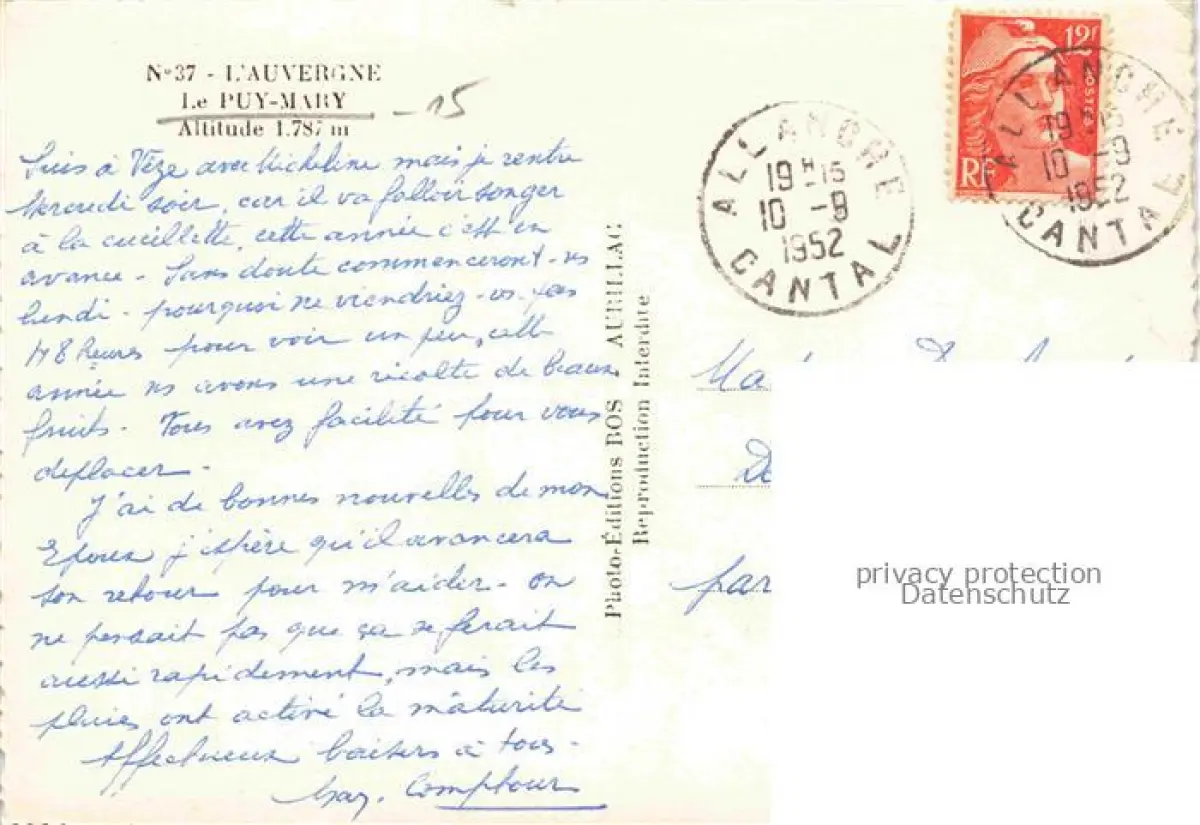 N°37 - L'AUVERGNE
Le PUY-MARY
Altitude 1.787 m
-15
Suis à Vèze avec Micheline mais je rentre
Mercredi soir, car il va falloir songer
à la cueillette, cette année c'est en
avance - Sans doute commenceront-ns
lundi - pourquoi ne viendriez-vs-pas
48 heures pour voir un peu, cette
année ns avons une récolte de beaux
fruits - Vous avez facilité pour vous
déplacer -
J'ai de bonnes nouvelles de mon
Epoux j'espère qu'il avancera
son retour pour m'aider - on
ne pensait pas que ça se ferait
aussi rapidement, mais les
pluies ont activé la mâturité
Affectueux baisers à tous -
Comptour
Photo-Éditions BOS, AURILLAC
Reproduction Interdite
ALLANCHE
19H15
10 -9
1952
CANTAL
12F
POSTES
RF
ALLANCHE
19H15
10 -9
1952
CANTAL
par
privacy protection
Datenschutz